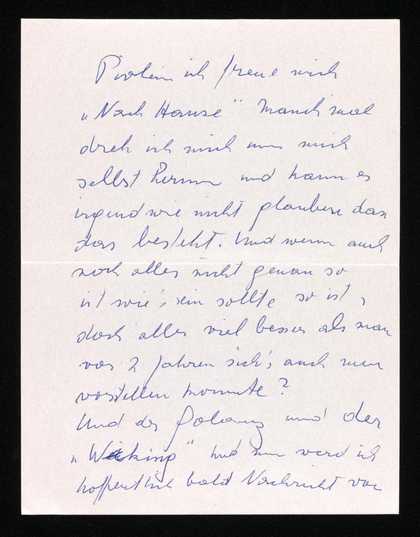 ich freue mich
„Nach Hause" Manchmal
dreh ich mich um mich
selbst herum und kann es
irgendwie nicht glauben dass
das besteht. Und wenn auch
noch alles nicht genau so
ist wie's sein sollte so ist,
doch alles viel besser als man
vor 2 Jahren sich's auch nur
vorstellen konnte?
Und der und der
„Wiking" und nun werd ich
hoffentlich bald Nachricht von